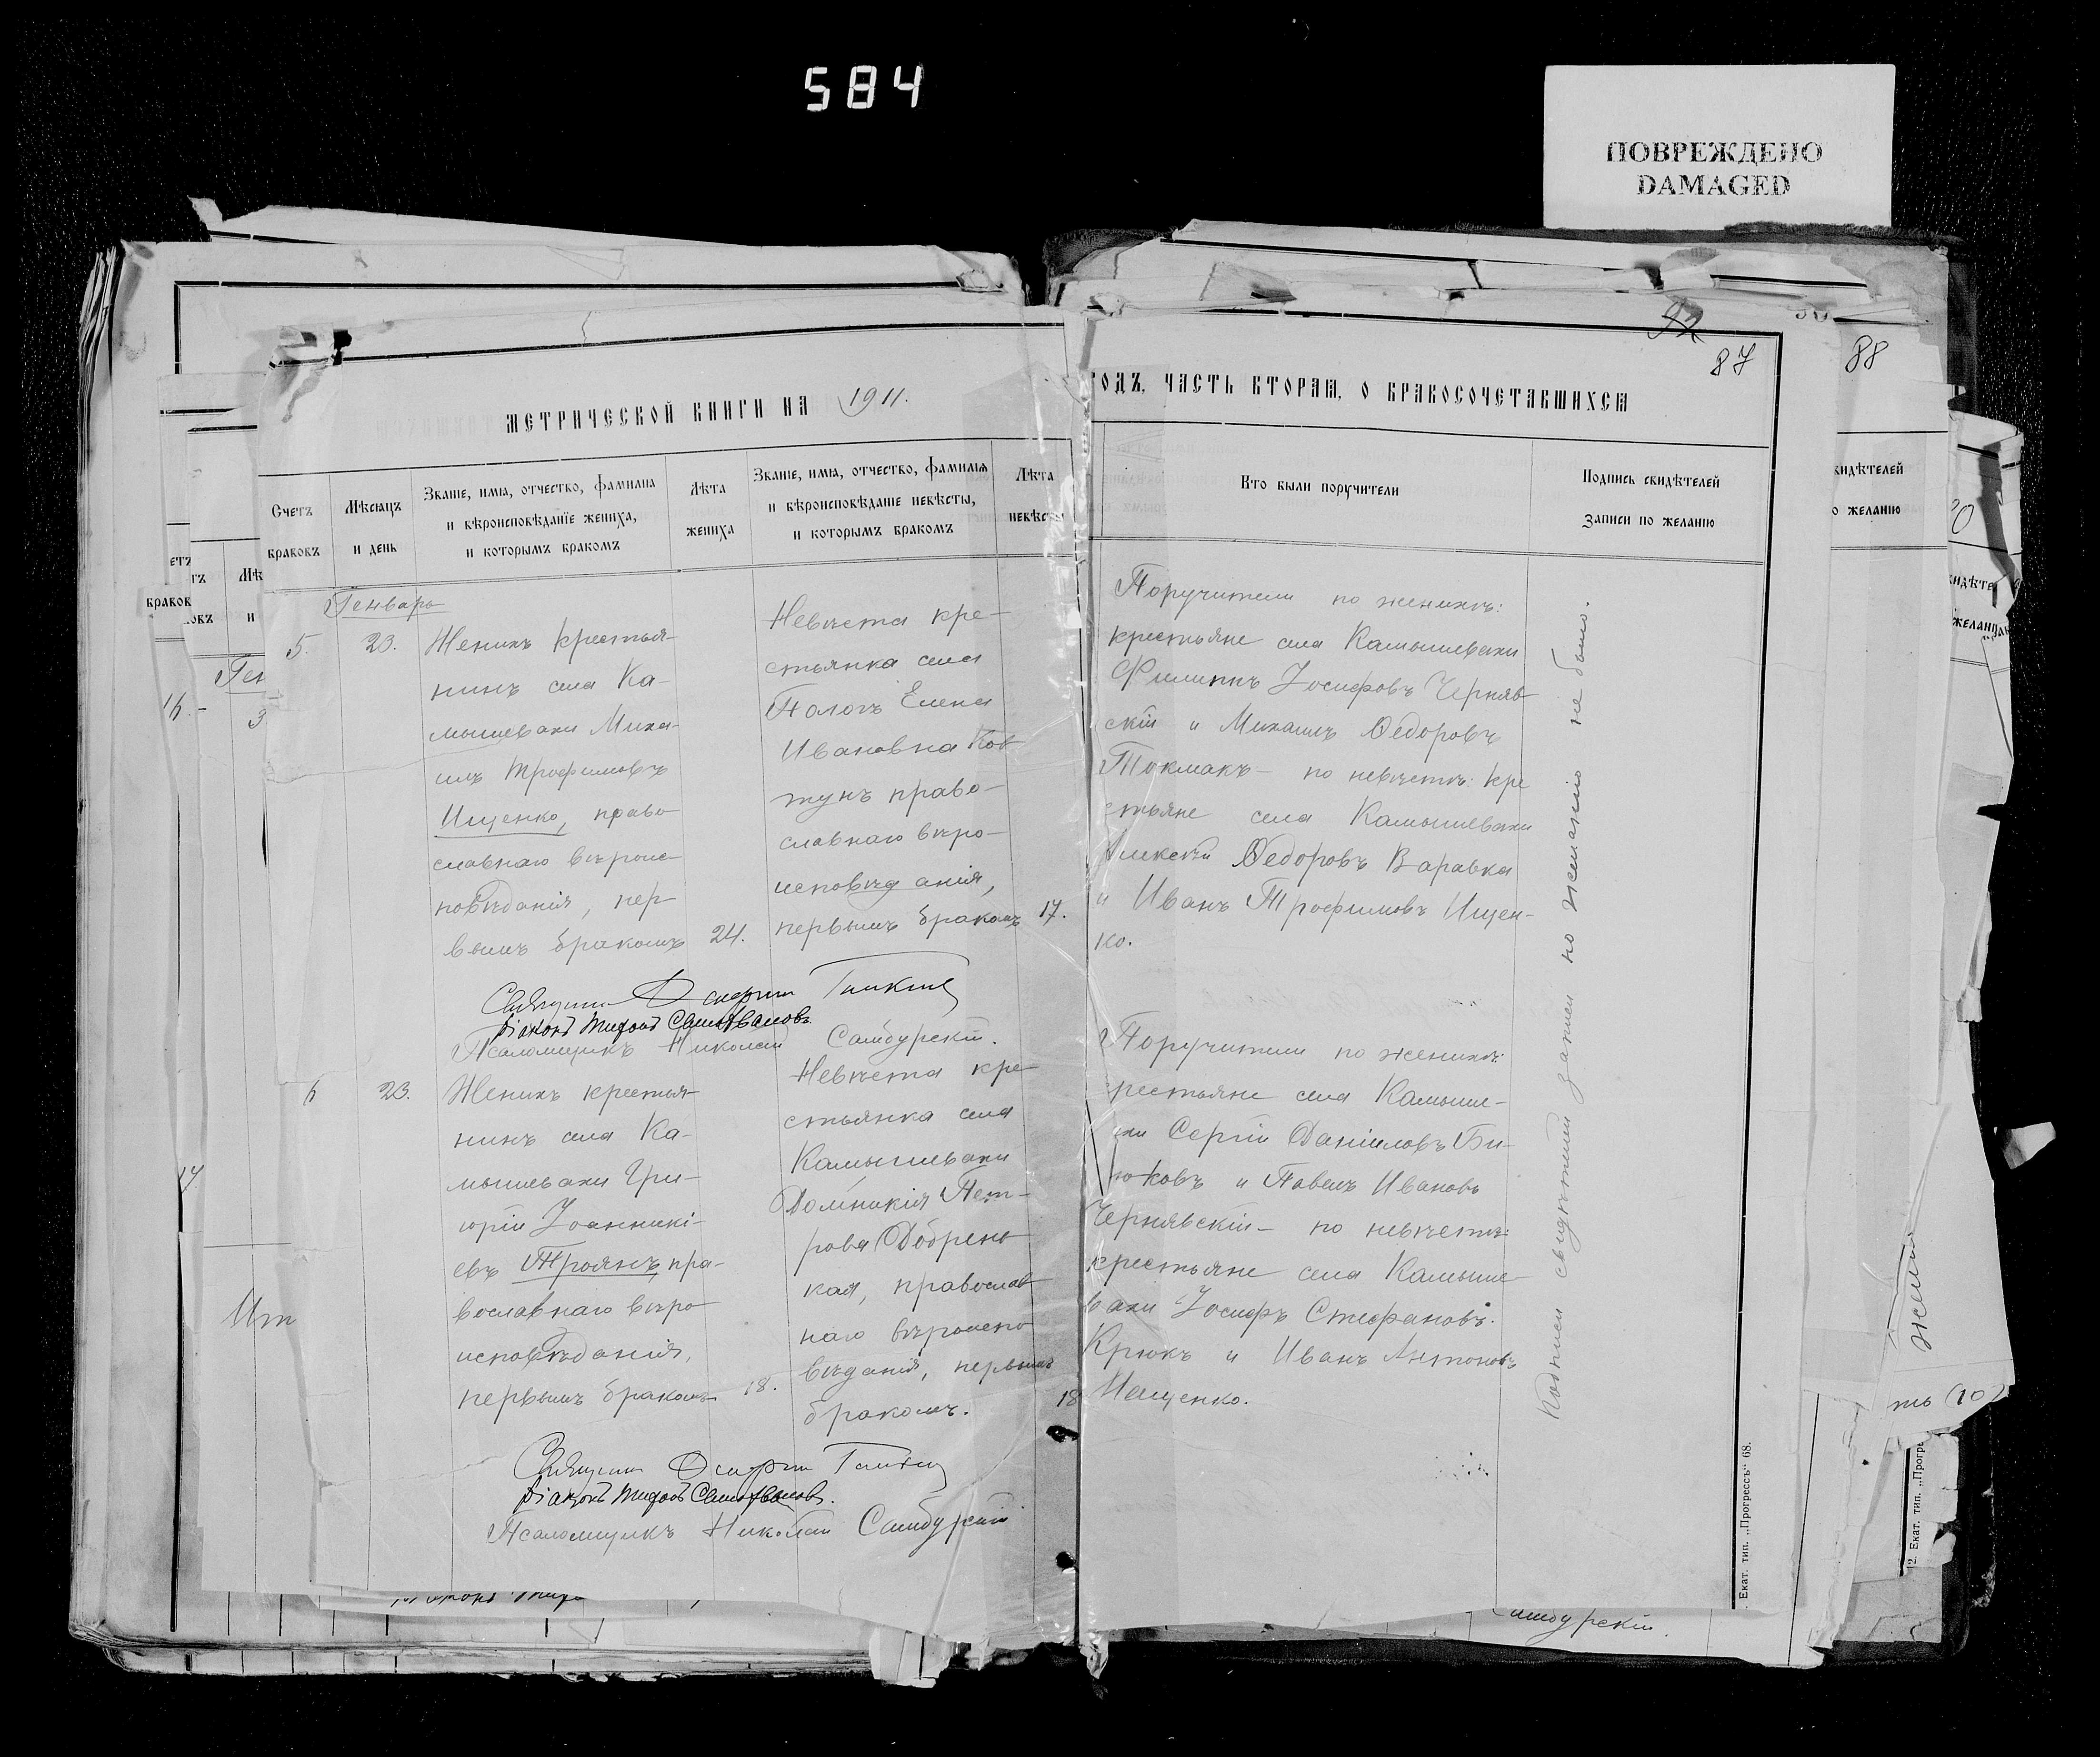 584
ПОВРЕЖДЕНО
DAMAGED
87
88
МЕТРИЧЕСКОЙ КНИГИ НА 1911.
ГОДЪ, ЧАСТЬ ВТОРАЯ, О БРАКОСОЧЕТАВШИХСЯ
Счетъ
браковъ
Мѣсяцъ
и день
Званіе, имя, отчество, фамилія
и вѣроисповѣданіе жениха,
и которымъ бракомъ
Лѣта
жениха
Званіе, имя, отчество, фамилія
и вѣроисповѣданіе невѣсты,
и которымъ бракомъ
Лѣта
невѣсты
Кто были поручители
Подпись свидѣтелей
записи по желанію
Генварь
5.
23.
Женихъ крестья-
нинъ села Ка-
мышевахи Миха-
илъ Трофимовъ
Ищенко, право-
славнаго вѣроис-
повѣданія, пер-
вымъ бракомъ
24.
Невѣста кре-
стьянка села
Пологъ Елена
Ивановна Ков-
тунъ право-
славнаго вѣро-
исповѣданія,
первымъ бракомъ
17.
Поручители по женихѣ:
крестьяне села Камышевахи
Филиппъ Іосифовъ Черняв-
скій и Михаилъ Ѳедоровъ
Токмакъ – по невѣстѣ: кре
стьяне села Камышевахи
Алексѣй Ѳедоровъ Варавка
и Иванъ Трофимовъ Ищен-
ко.
Священникъ
Діаконъ
Псаломщикъ Николай Самбурскій.
6
23.
Женихъ крестья-
нинъ села Ка-
мышевахи Гри-
горій Іоанникі-
евъ Троянъ пра-
вославнаго вѣро-
исповѣданія,
первымъ бракомъ
18.
Невѣста кре-
стьянка села
Камышевахи
Домникія Пет-
рова Добрень-
кая, православ-
наго вѣроиспо-
вѣданія, первымъ
бракомъ.
18
Поручители по женихѣ:
рестьяне села Камыше-
хи Сергій Даніиловъ Би-
рюковъ и Павелъ Ивановъ
Чернявскій – по невѣстѣ:
крестьяне села Камыше-
вахи Іосифъ Стефановъ
Крюкъ и Иванъ Антоновъ
Ищенко.
Священникъ
Діаконъ
Псаломщикъ Николай Самбурскій
Подписи свидѣтелей записи по желанію не было.
Екат. тип. „Прогрессъ“ 68.